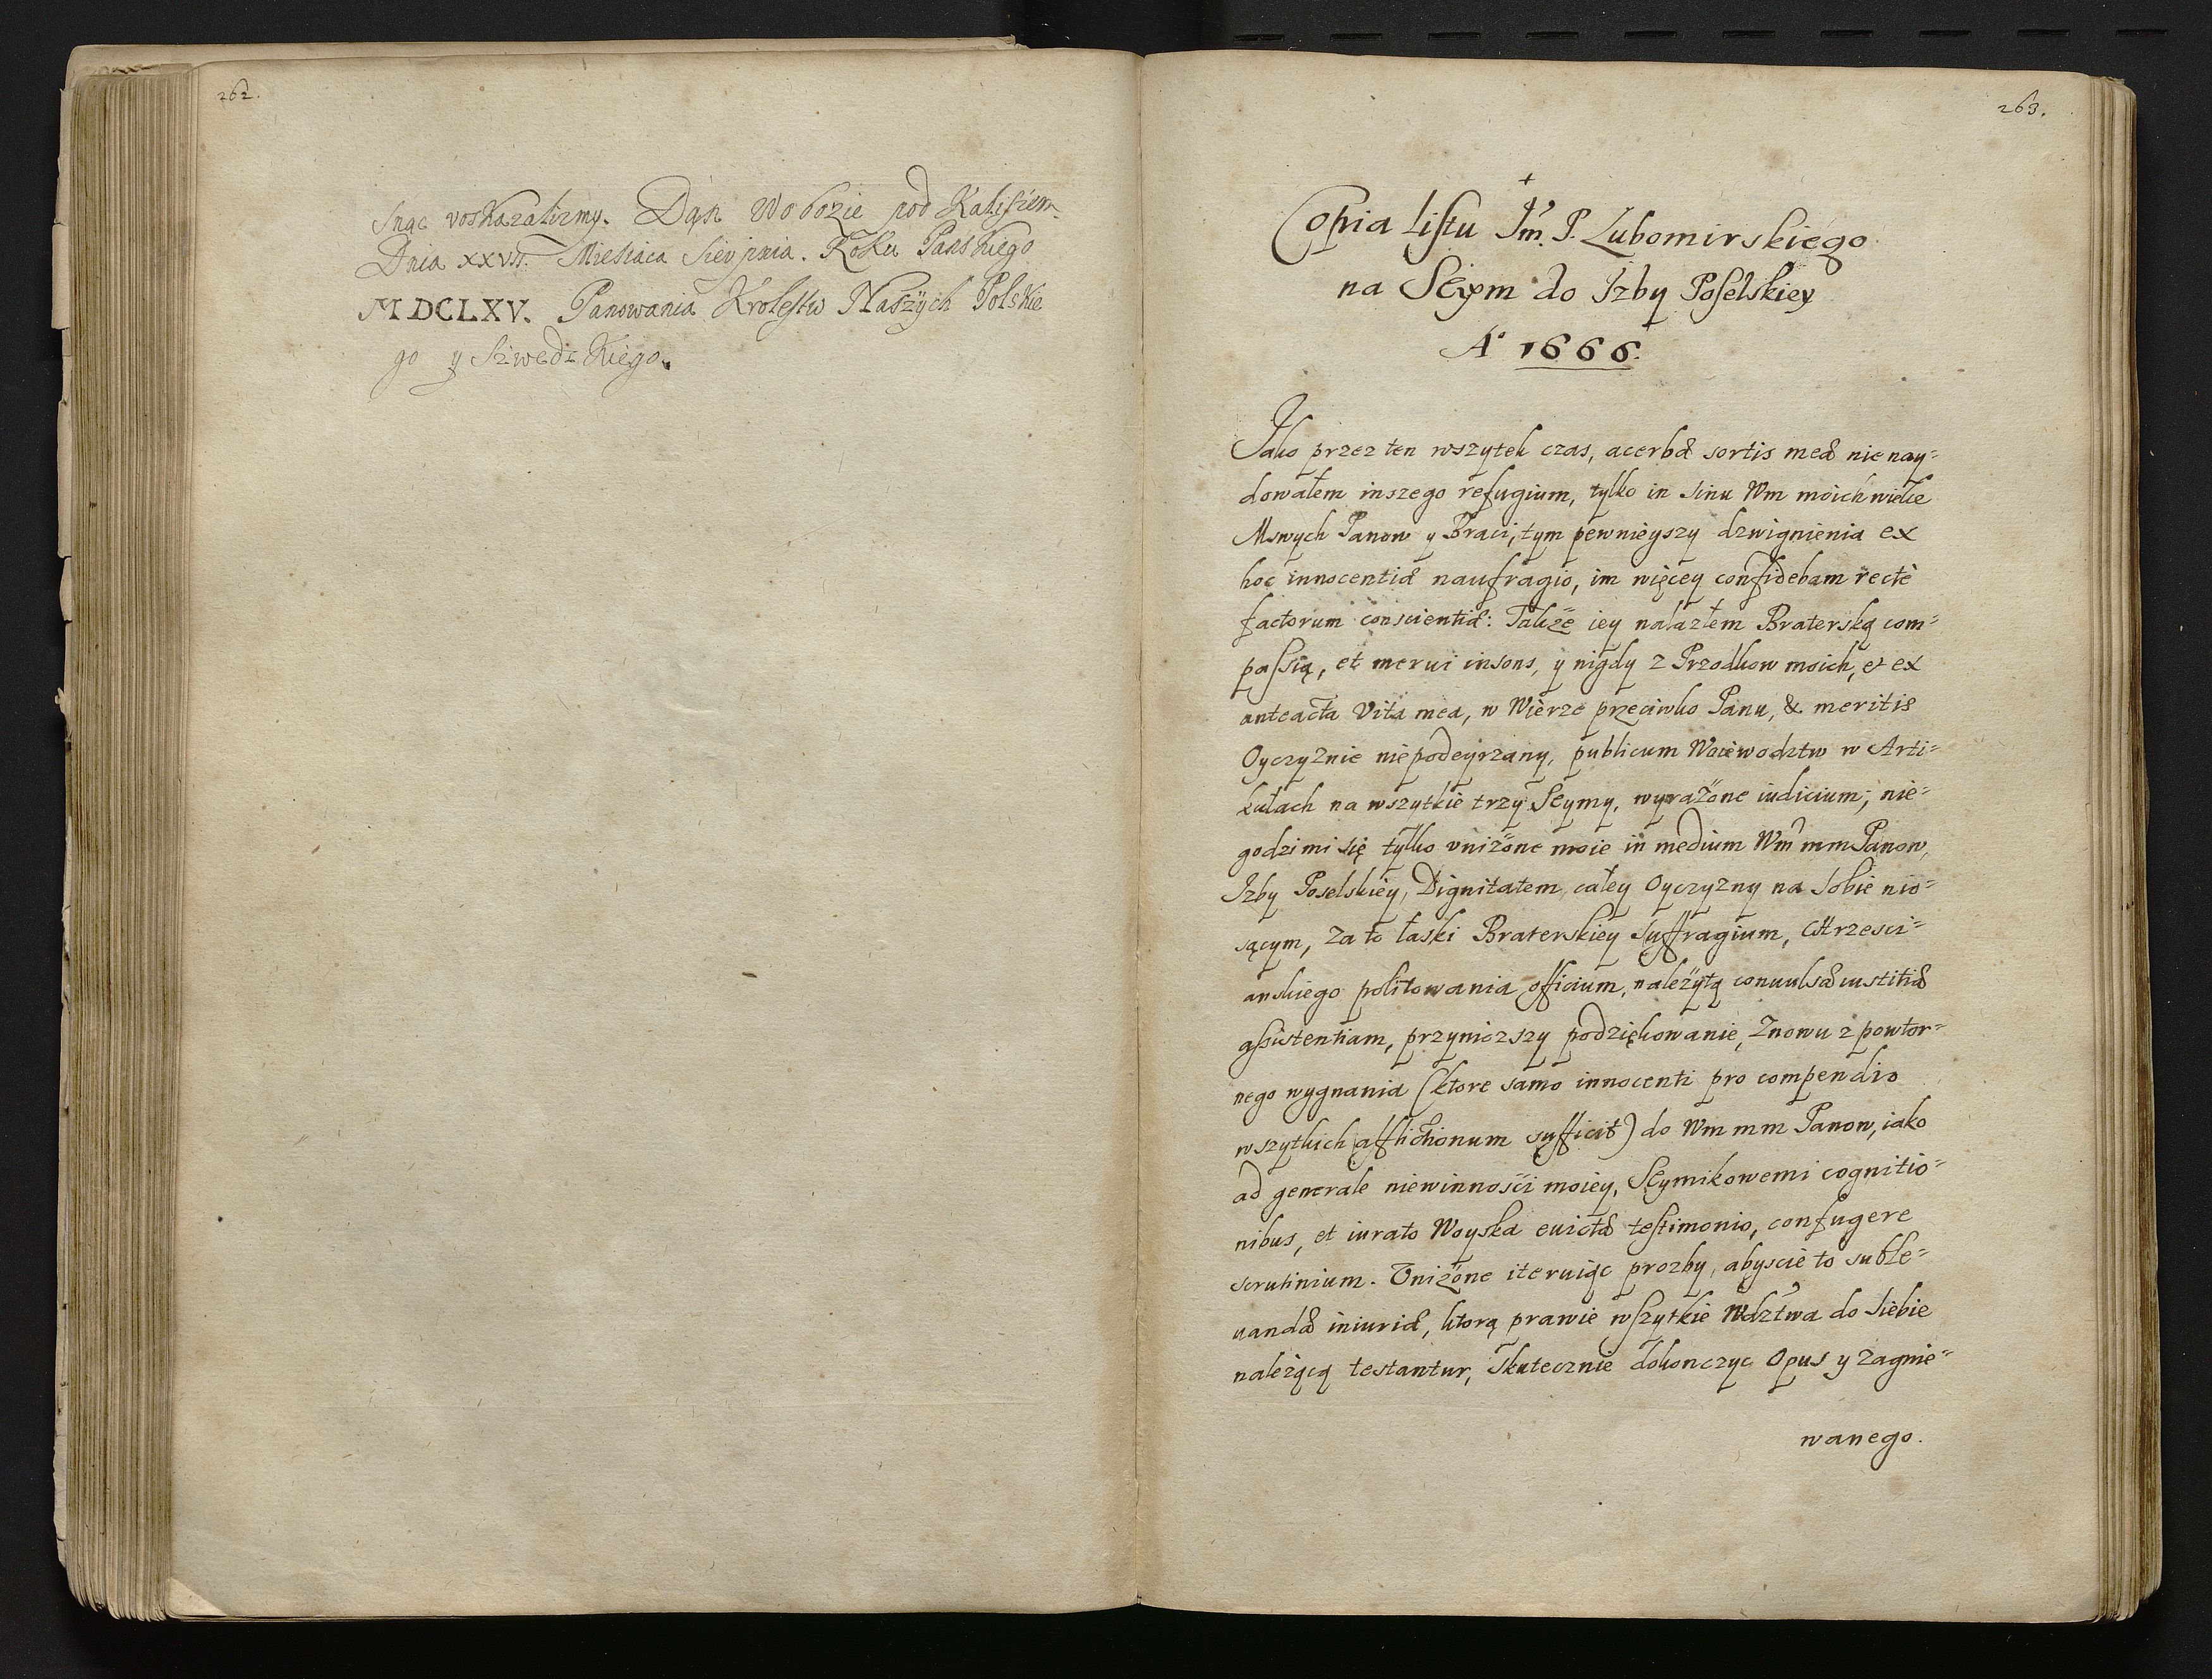 262.
snąc roskazalismy. Dąn w obozie pod Kaliszem
Dnia XXVII. Miesiaca Sierpnia. Roku Panskiego
MDCLXV. Panowania Krolestw Naszÿch Polskie
go y Szwedzkiego.
263.
Copia listu Jm̃. P. Lubomirskiego
na Seym do Jzby Poselskiey
A° 1666.
Jako przez ten wszytek czas, acerbæ sortis meæ nie nay=
dowałem inszego refugium, tylko in sinu Wm moich wielce
Mswych Panow y Braci, tym pewnieyszy dzwignienia ex
hoc innocentiæ naufragio, im więcey confidebam rectè
factorum conscientiæ: Takze iey nalazłem Braterską com=
passią, et merui insons, y nigdy z Przodkow moich, et ex
anteacta Vita mea, w Wierze przeciwko Panu, & meritis
Oyczyznie niepodeyrzany, publicum Woiewodztw w Arti=
kułach na wszytkie trzy Seymy, wyrażone iudicium; nie=
godzi mi się tylko vniżone moie in medium Wm̃ mm Panow,
Izby Poselskiey, Dignitatem całey Oyczyzny na sobie nio=
sącym, Za to łaski Braterskiey suffragium, Chrzesci=
anskiego politowania officium, należÿtą conuulsæ iustitiæ
assistentiam, przynioszszy podziękowanie, Znowu z powtor=
nego wygnania (ktore samo innocenti pro compendio
wszytkich afflictionum sufficit) do Wm mm Panow, iako
ad generale niewinności moiey, Seymikowemi cognitio=
nibus, et iurato Woyska euictæ testimonio, confugere
scrutinium. Vniżone iteruiąc prozby, abyscie to suble=
uandæ iniuriæ, ktorą prawie wszytkie Wdztwa do siebie
należącą testantur, skutecznie dokonczyc Opus y zagnie=
wanego.